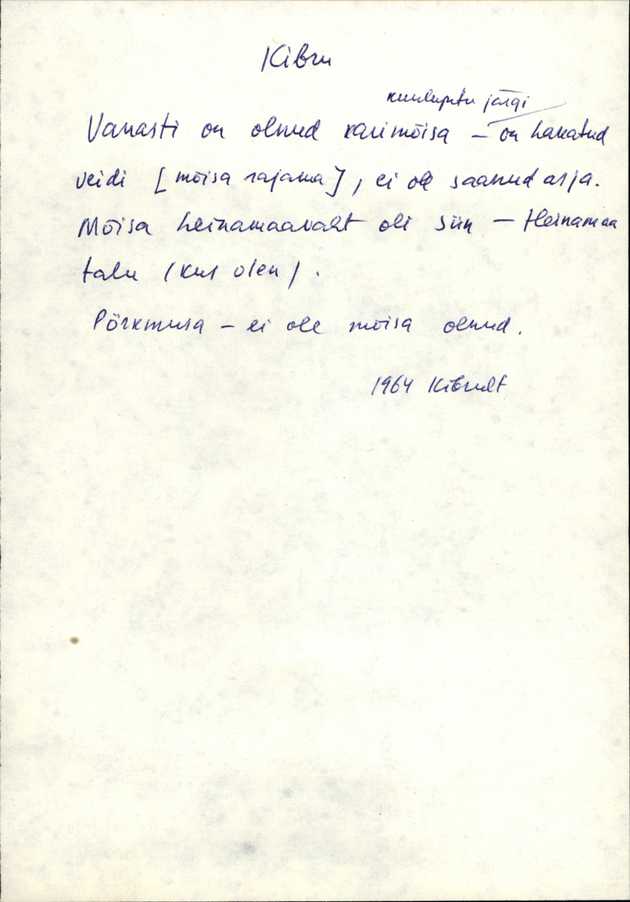 Kibru
kuulujutu järgi
Vanasti on olnud karimõisa – on hakatud
veidi [mõisa rajama], ei ole saanud asja.
Mõisa heinamaavaht oli siin – Heinamaa
talu (kus olen).
Põrkmusa – ei ole mõisa olnud.
1964 Kibrult